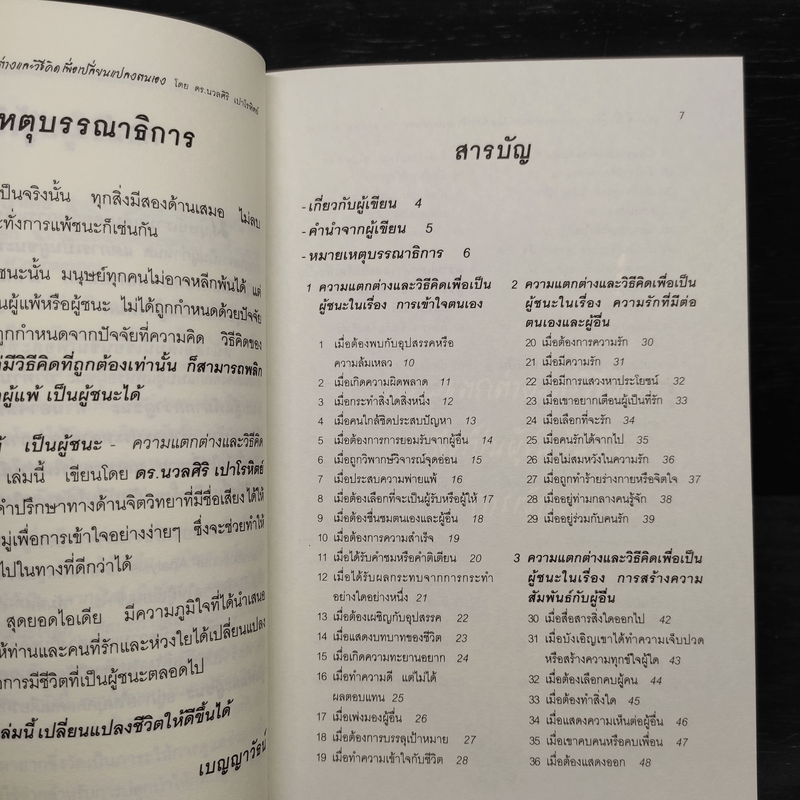 ต่างและวิธีคิด เพื่อเปลี่ยนแปลงตนเอง โดย ดร.นวลศิริ เปาโรหิตย์
เหตุบรรณาธิการ
เป็นจริงนั้น ทุกสิ่งมีสองด้านเสมอ ไม่ลบ
ะทั่งการแพ้ชนะก็เช่นกัน
ชนะนั้น มนุษย์ทุกคนไม่อาจหลีกพ้นได้ แต่
นผู้แพ้หรือผู้ชนะ ไม่ได้ถูกกำหนดด้วยปัจจัย
ถูกกำหนดจากปัจจัยที่ความคิด วิธีคิดของ
มีวิธีคิดที่ถูกต้องเท่านั้น ก็สามารถพลิก
ผู้แพ้ เป็นผู้ชนะได้
เป็นผู้ชนะ - ความแตกต่างและวิธีคิด
เล่มนี้ เขียนโดย ดร.นวลศิริ เปาโรหิตย์
คำปรึกษาทางด้านจิตวิทยาที่มีชื่อเสียงได้ให้
มู่เพื่อการเข้าใจอย่างง่ายๆ ซึ่งจะช่วยทำให้
ไปในทางที่ดีกว่าได้
สุดยอดไอเดีย มีความภูมิใจที่ได้นำเสนอ
ห้ท่านและคนที่รักและห่วงใยได้เปลี่ยนแปลง
การมีชีวิตที่เป็นผู้ชนะตลอดไป
เล่มนี้ เปลี่ยนแปลงชีวิตให้ดีขึ้นได้
เบญญาวัธน์
7
สารบัญ
- เกี่ยวกับผู้เขียน 4
- คำนำจากผู้เขียน 5
- หมายเหตุบรรณาธิการ 6
1 ความแตกต่างและวิธีคิดเพื่อเป็น
ผู้ชนะในเรื่อง การเข้าใจตนเอง
1 เมื่อต้องพบกับอุปสรรคหรือ
ความล้มเหลว 10
2 เมื่อเกิดความผิดพลาด 11
3 เมื่อกระทำสิ่งใดสิ่งหนึ่ง 12
4 เมื่อคนใกล้ชิดประสบปัญหา 13
5 เมื่อต้องการการยอมรับจากผู้อื่น 14
6 เมื่อถูกวิพากษ์วิจารณ์จุดอ่อน 15
7 เมื่อประสบความพ่ายแพ้ 16
8 เมื่อต้องเลือกที่จะเป็นผู้รับหรือผู้ให้ 17
9 เมื่อต้องชื่นชมตนเองและผู้อื่น 18
10 เมื่อต้องการความสำเร็จ 19
11 เมื่อได้รับคำชมหรือคำติเตียน 20
12 เมื่อได้รับผลกระทบจากการกระทำ
อย่างใดอย่างหนึ่ง 21
13 เมื่อต้องเผชิญกับอุปสรรค 22
14 เมื่อแสดงบทบาทของชีวิต 23
15 เมื่อเกิดความทะยานอยาก 24
16 เมื่อทำความดี แต่ไม่ได้
ผลตอบแทน 25
17 เมื่อเพ่งมองผู้อื่น 26
18 เมื่อต้องการบรรลุเป้าหมาย 27
19 เมื่อทำความเข้าใจกับชีวิต 28
2 ความแตกต่างและวิธีคิดเพื่อเป็น
ผู้ชนะในเรื่อง ความรักที่มีต่อ
ตนเองและผู้อื่น
20 เมื่อต้องการความรัก 30
21 เมื่อมีความรัก 31
22 เมื่อมีการแสวงหาประโยชน์ 32
23 เมื่อเขาอยากเตือนผู้เป็นที่รัก 33
24 เมื่อเลือกที่จะรัก 34
25 เมื่อคนรักได้จากไป 35
26 เมื่อไม่สมหวังในความรัก 36
27 เมื่อถูกทำร้ายร่างกายหรือจิตใจ 37
28 เมื่ออยู่ท่ามกลางคนรู้จัก 38
29 เมื่ออยู่ร่วมกับคนรัก 39
3 ความแตกต่างและวิธีคิดเพื่อเป็น
ผู้ชนะในเรื่อง การสร้างความ
สัมพันธ์กับผู้อื่น
30 เมื่อสื่อสารสิ่งใดออกไป 42
31 เมื่อบังเอิญเขาได้ทำความเจ็บปวด
หรือสร้างความทุกข์ใจผู้ใด 43
32 เมื่อต้องเลือกคบผู้คน 44
33 เมื่อต้องทำสิ่งใด 45
34 เมื่อแสดงความเห็นต่อผู้อื่น 46
35 เมื่อเขาคบคนหรือคบเพื่อน 47
36 เมื่อต้องแสดงออก 48